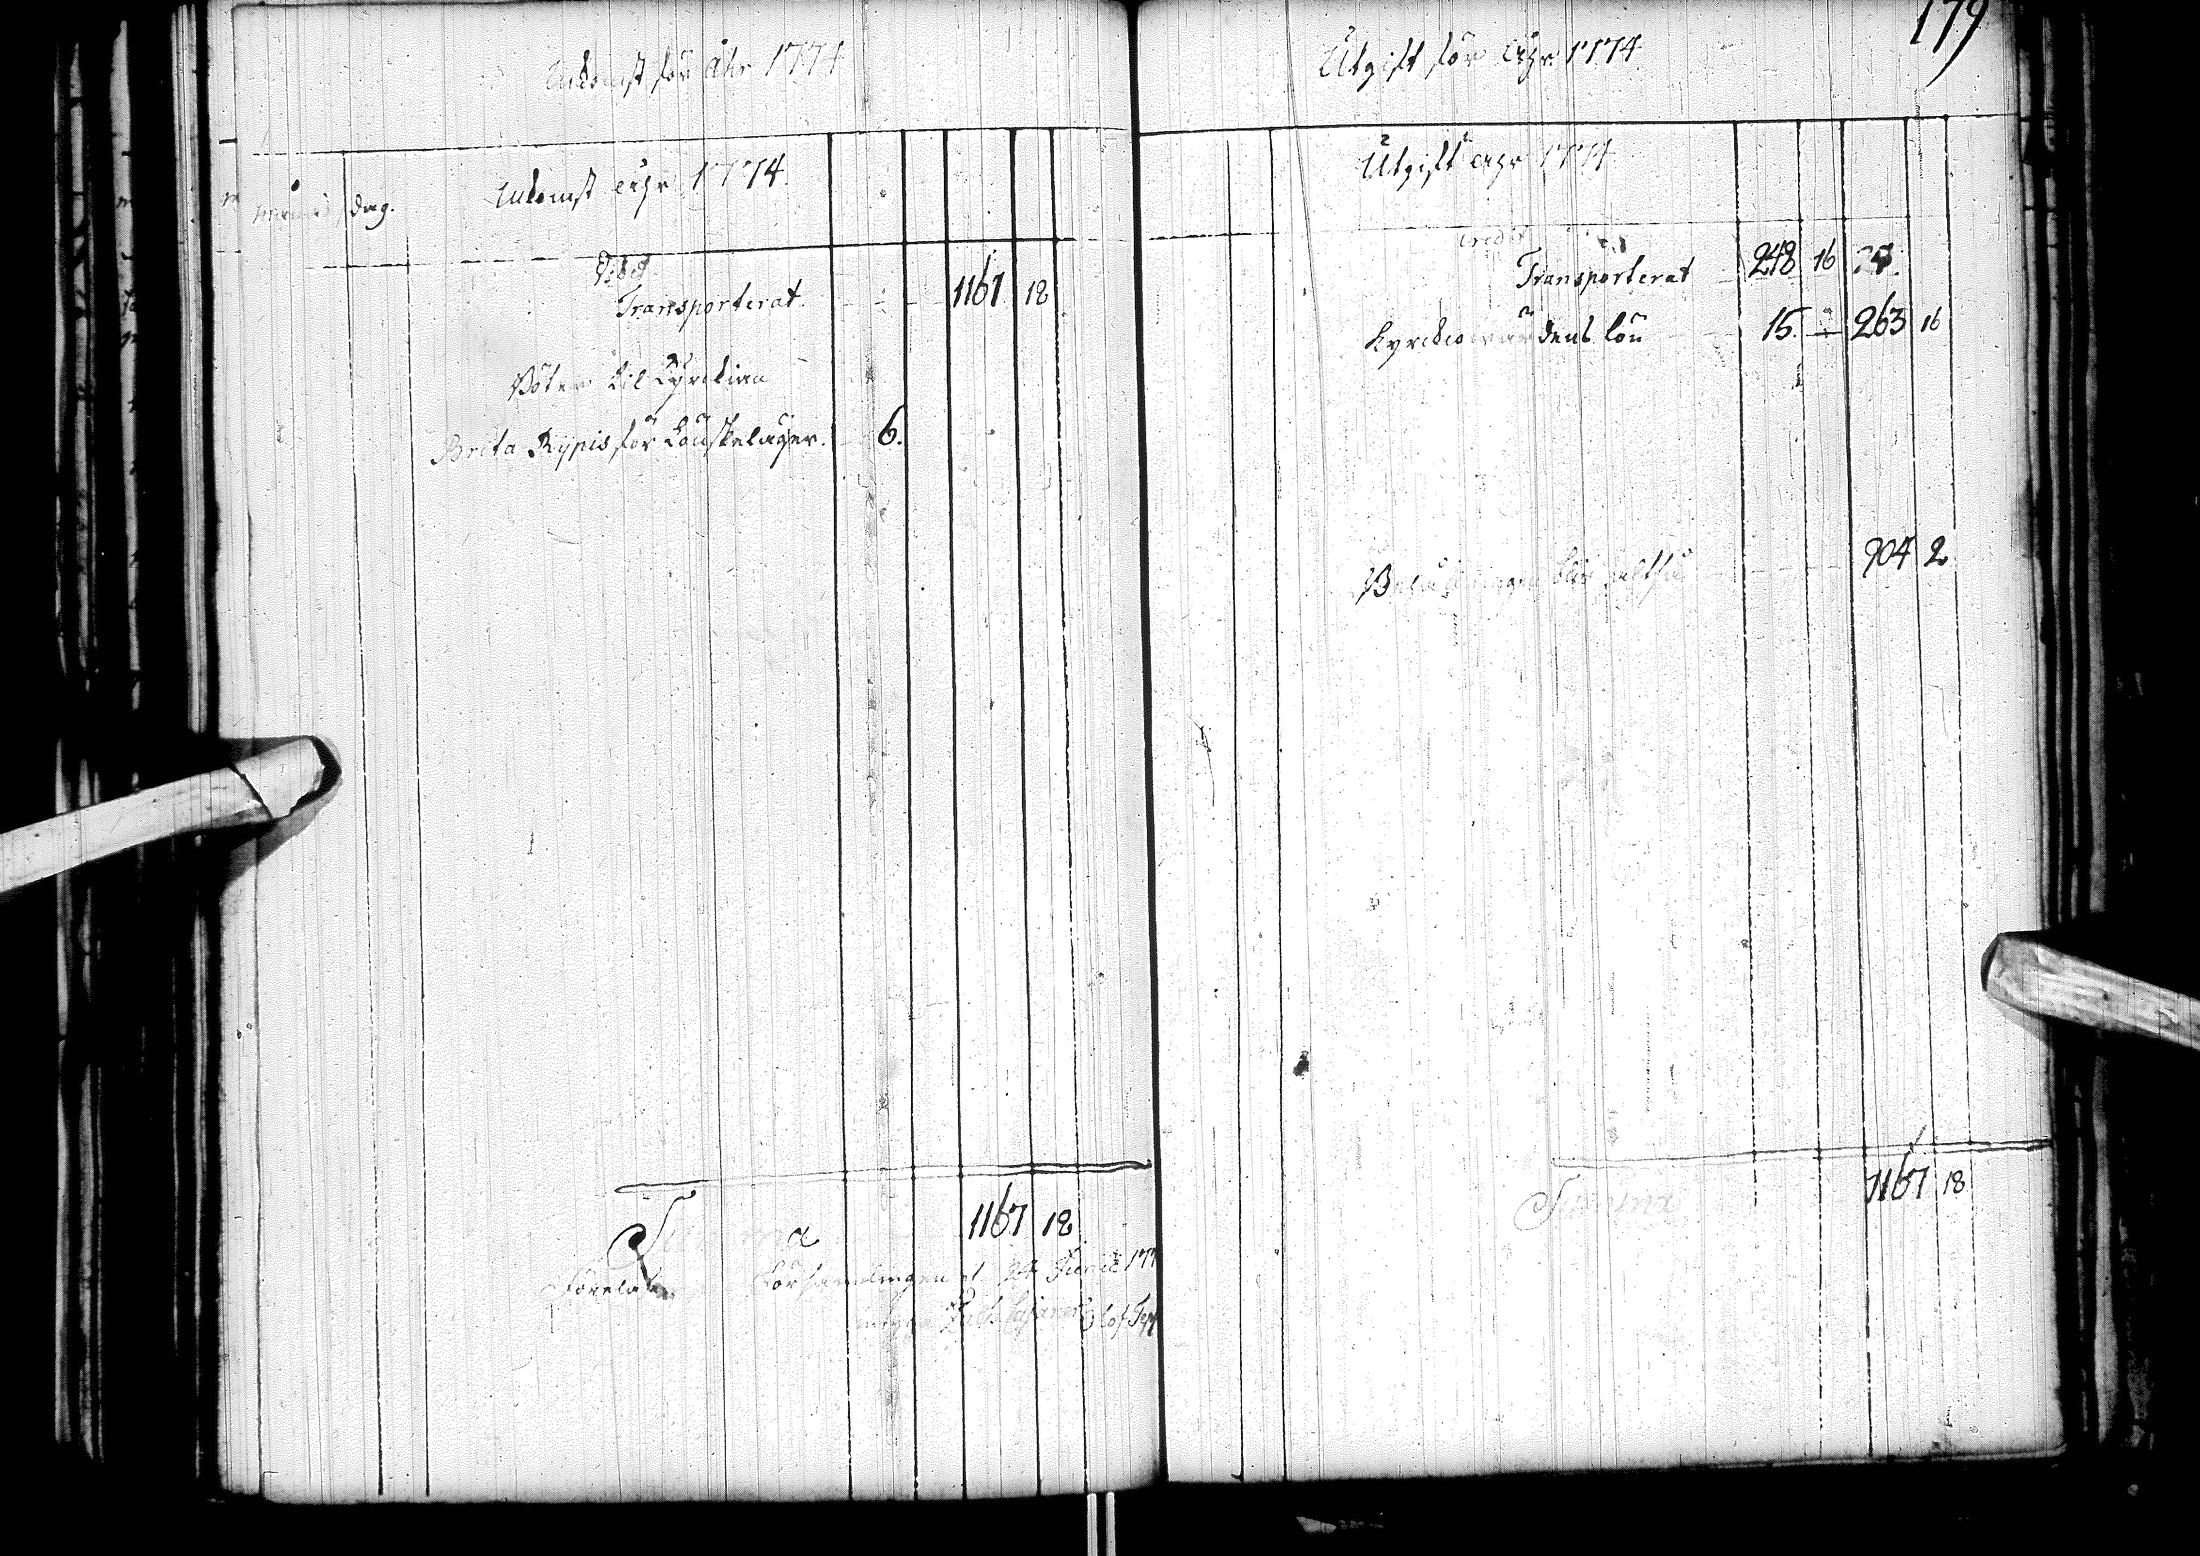 179
Inkomst för Åhr 1774
månad dag. Inkomst åhr 1774.
Debet
Transporterat 1167 18
Böter til Kyrckian
Brita Rypis för Löuskeläger. 6.
Summa 1167 18
för församlingen d. 24 Junii 177
Olof
Utgift för åhr 1774
Utgift åhr 1774
Credit
Transporterat 248 16
Kyrckiowärdens lön 15. 263 16
Behållningen blir altså 904 2
Summa 1167 18